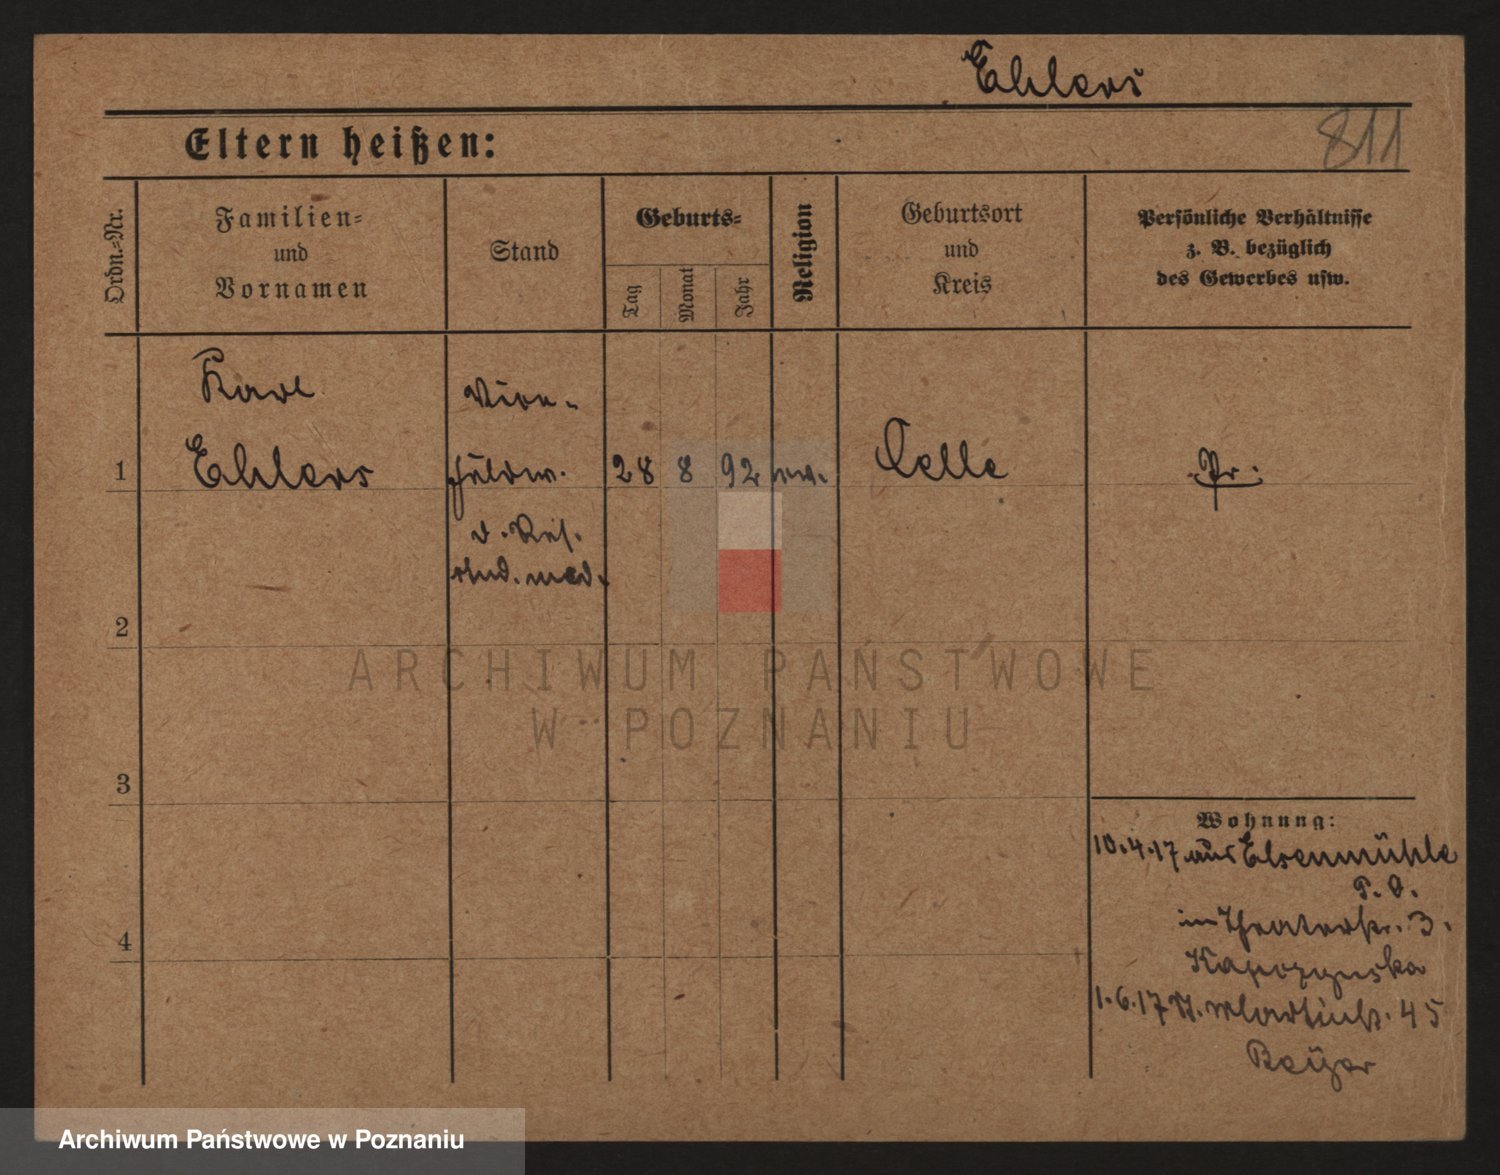 Ehlers
811
Eltern heißen:
Ordn.=Nr.
Familien=
und
Vornamen
Stand
Geburts=
Tag
Monat
Jahr
Religion
Geburtsort
und
Kreis
Persönliche Verhältnisse
z. B. bezüglich
des Gewerbes usw.
Karl
Vize-
1 Ehlers Feldw. 28 8 92 ev. Celle Pr.
d. Res.
stud. med.
2
ARCHIWUM PAŃSTWOWE
W POZNANIU
3
Wohnung:
10.4.17 aus Elsenmühle
P. O.
in Theaterstr. 3.
4
1.6.17 St. Martinstr. 45
Beyer
Archiwum Państwowe w Poznaniu